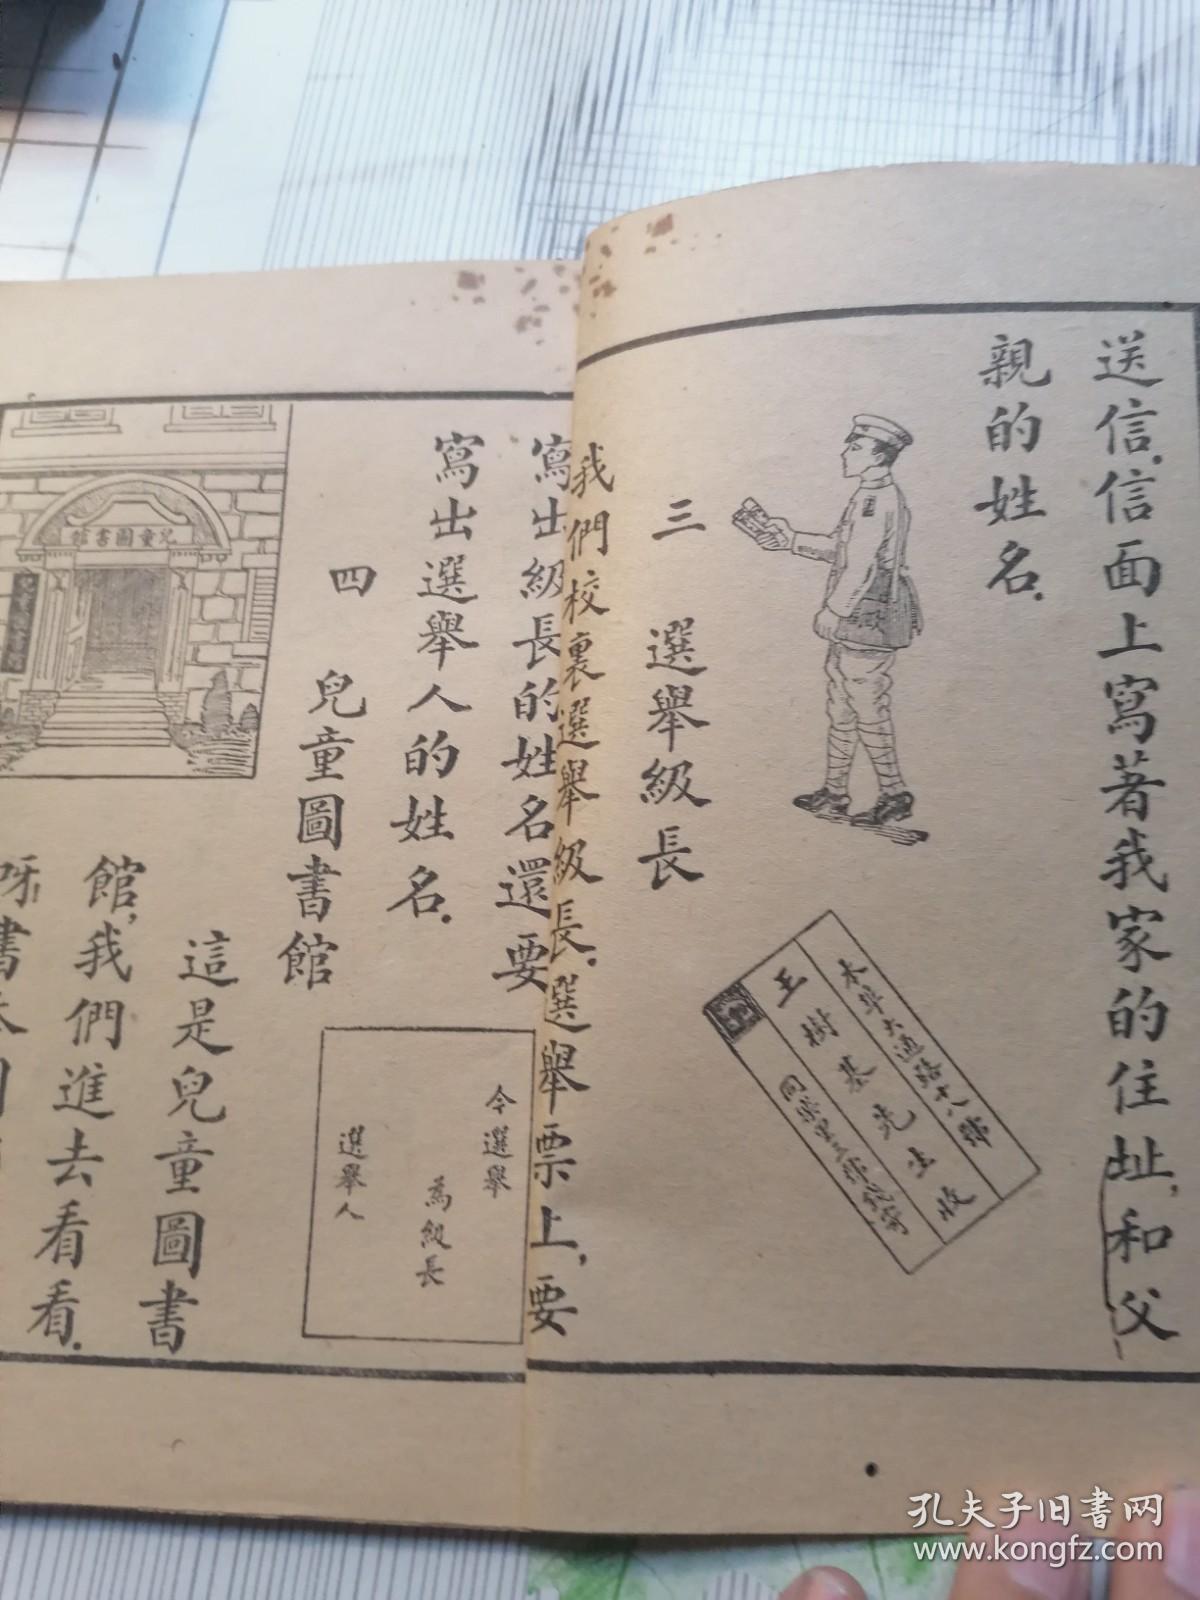 送信,信面上寫著我家的住址,和父
親的姓名.
本埠大通路十八號
王樹基先生收
三 選舉級長
我們校裏選舉級長.選舉票上,要
寫出級長的姓名還要
寫出選舉人的姓名.
今選舉
為級長
選舉人
四 兒童圖書館
兒童圖書館
這是兒童圖書
館,我們進去看看.
孔夫子旧书网
www.kongfz.com